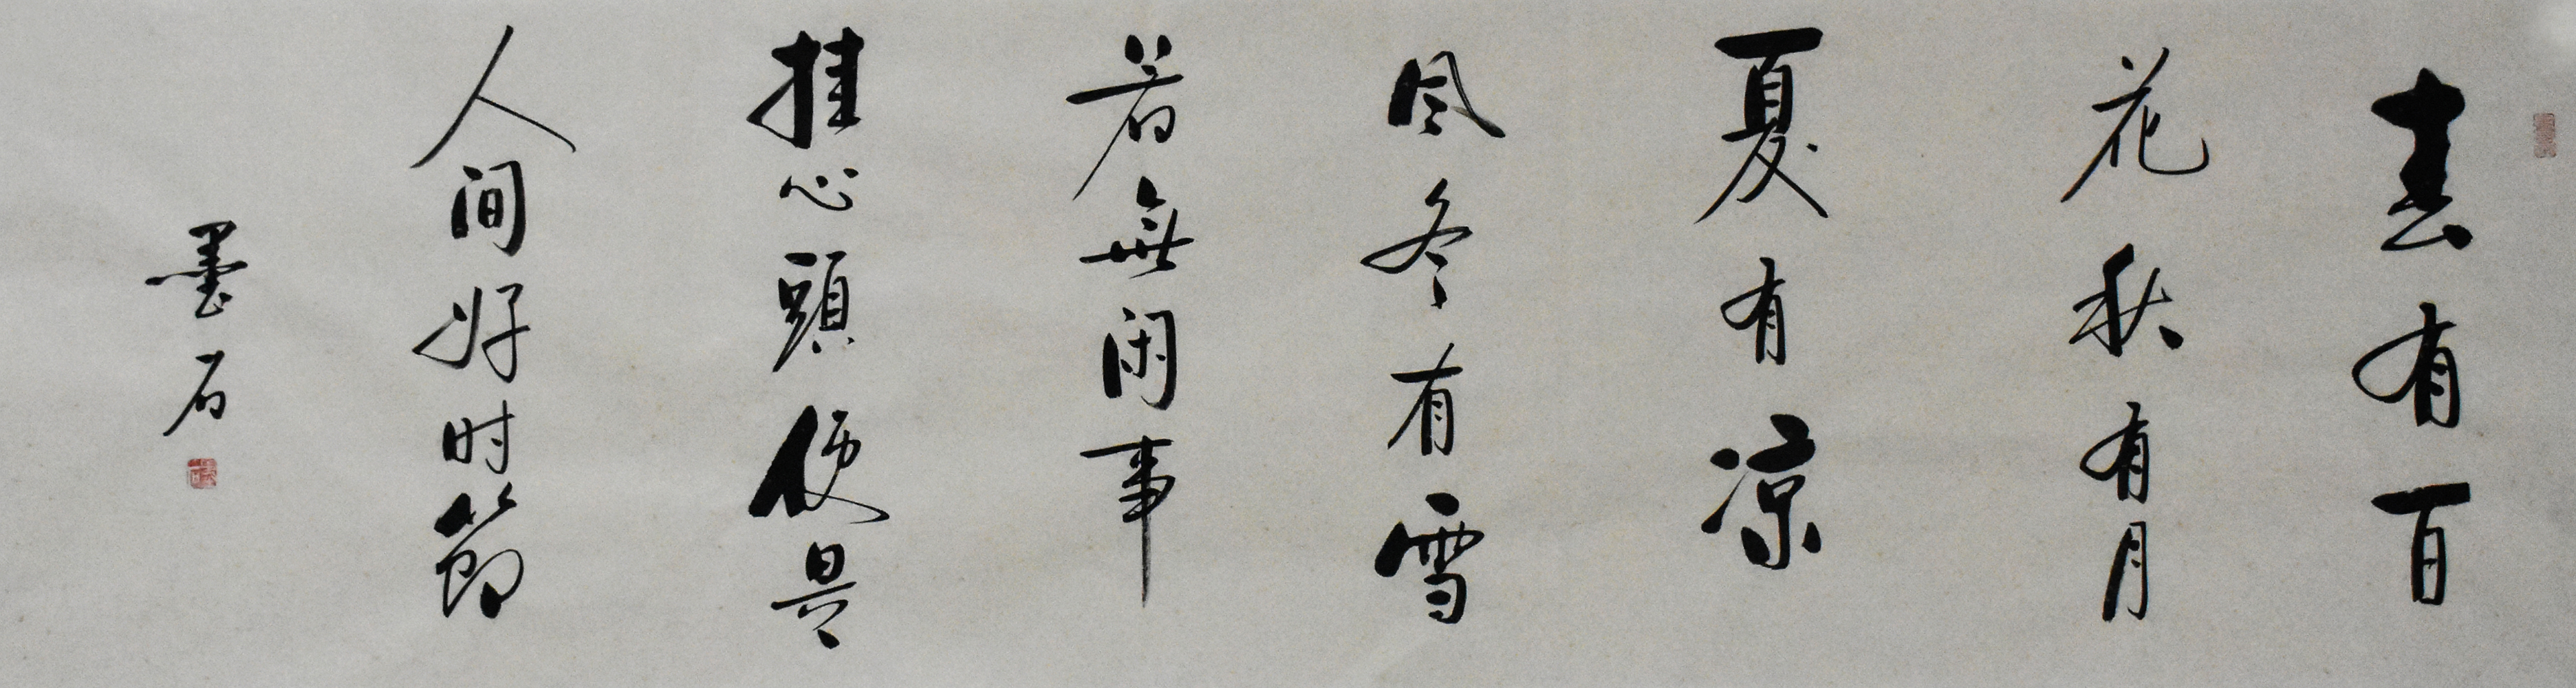 春有百
花秋有月
夏有凉
风冬有雪
若無闲事
挂心頭便是
人间好时節
墨石